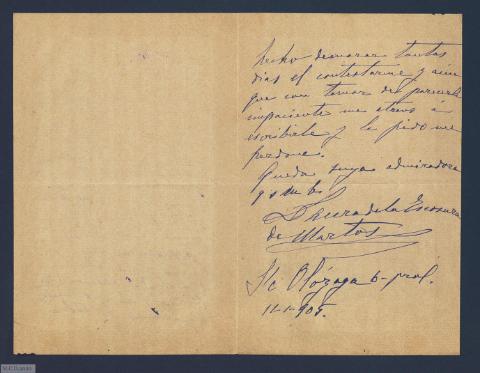 hecho demorar tantas
dias el contestarme y aun
que con temor de parecerle
impaciente me atrevo á
escribirle y le pido me
perdone.
Queda suya admiradora
q s m b
Laura de la Escosura
de Martos
S/c Olózaga 6- pral.
11-1-905.